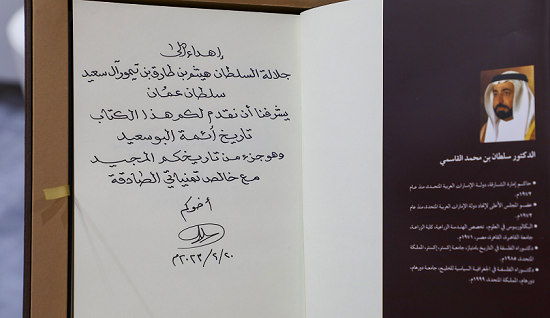 إهداء إلى
جلالة السلطان هيثم بن طارق بن تيمور آل سعيد
سلطان عُمان
يشرفنا أن نقدم لكم هذا الكتاب
تاريخ أئمة البوسعيد
وهو جزء من تاريخكم المجيد
مع خالص تمنياتي الصادقة
أخوكم
٢٠٢٣/٤/٢٠م
الدكتور سلطان بن محمد القاسمي
• حاكم إمارة الشارقة، دولة الإمارات العربية المتحدة، منذ عام
١٩٧٢م.
• عضو المجلس الأعلى لاتحاد دولة الإمارات العربية المتحدة، منذ عام
١٩٧٢م.
• البكالوريوس في العلوم، تخصص الهندسة الزراعية، كلية الزراعة،
جامعة القاهرة، القاهرة، مصر، ١٩٧١م.
• دكتوراه الفلسفة في التاريخ بامتياز، جامعة إكستر، إكستر، المملكة
المتحدة، ١٩٨٥م.
• دكتوراه الفلسفة في الجغرافية السياسية للخليج، جامعة دورهام،
دورهام، المملكة المتحدة، ١٩٩٩م.